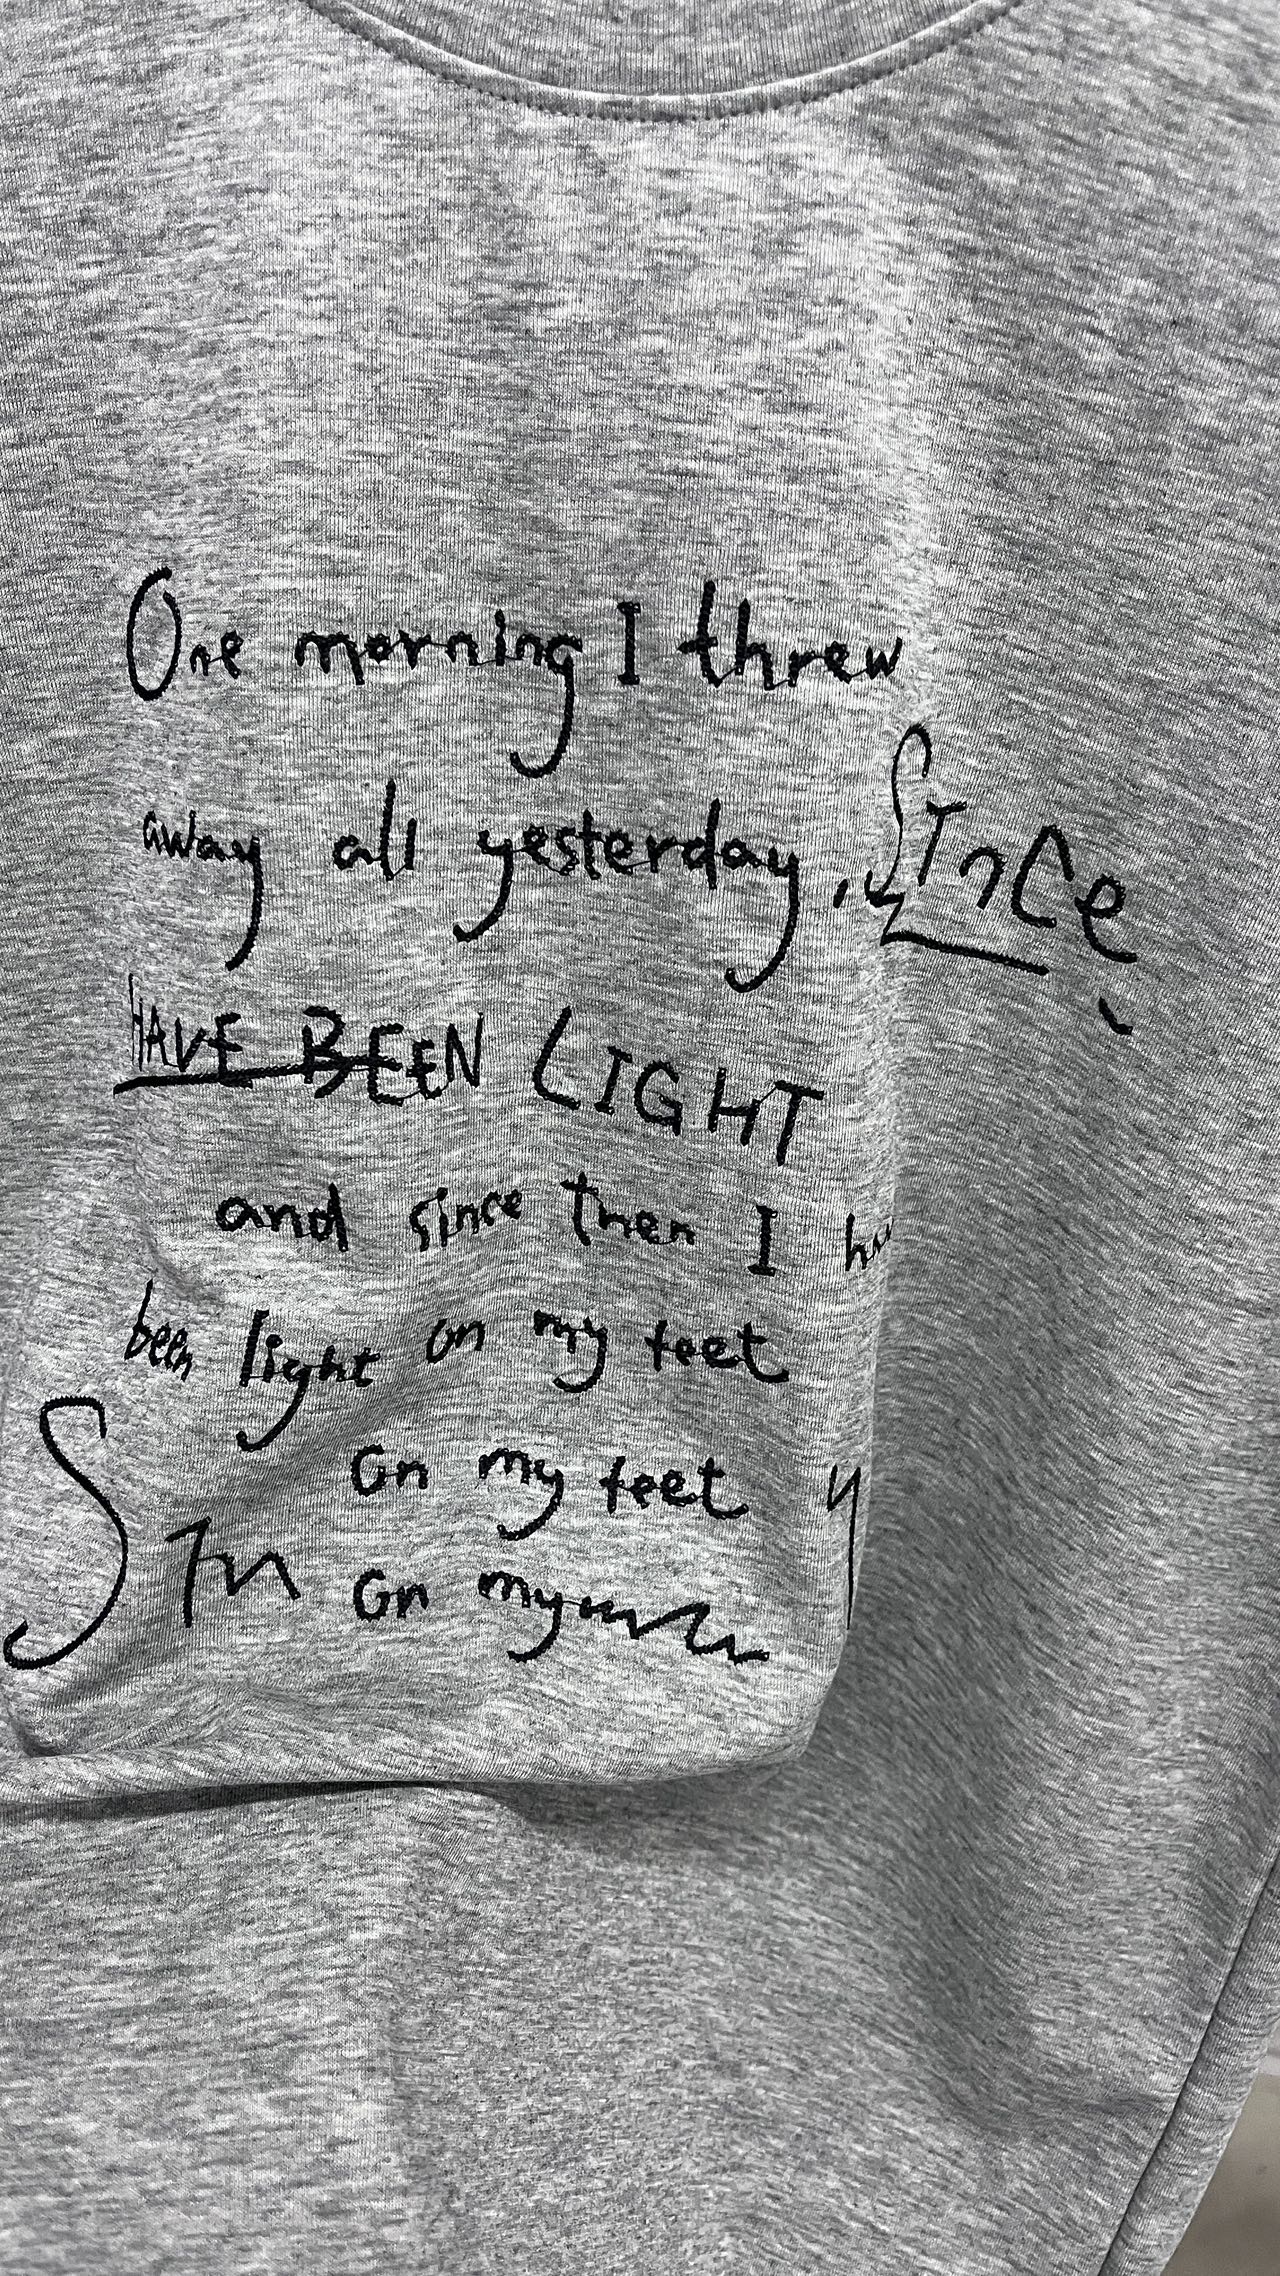 One morning I threw
away all yesterday, Since
HAVE BEEN LIGHT
and since then I
been light on my feet
on my feet
on my